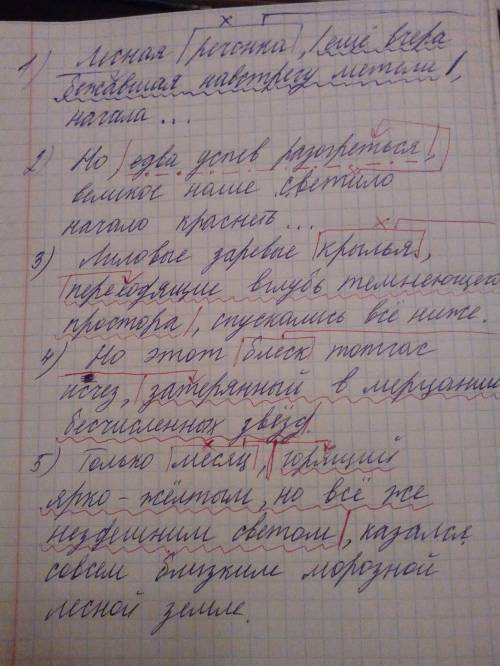 1) Лесная речонка, ещё вчера
бежавшая навстречу метели,
начала ...
2) Но, едва успев разогреться,
великое наше светило
начало краснеть ...
3) Лиловые заревые крылья,
переходящие вглубь темнеющего
простора, спускались всё ниже.
4) Но этот блеск тотчас
исчез, затерянный в мерцании
бесчисленных звёзд.
5) Только месяц, горящий
ярко-жёлтым, но всё же
нездешним светом, казался
совсем близким морозной
лесной земле.